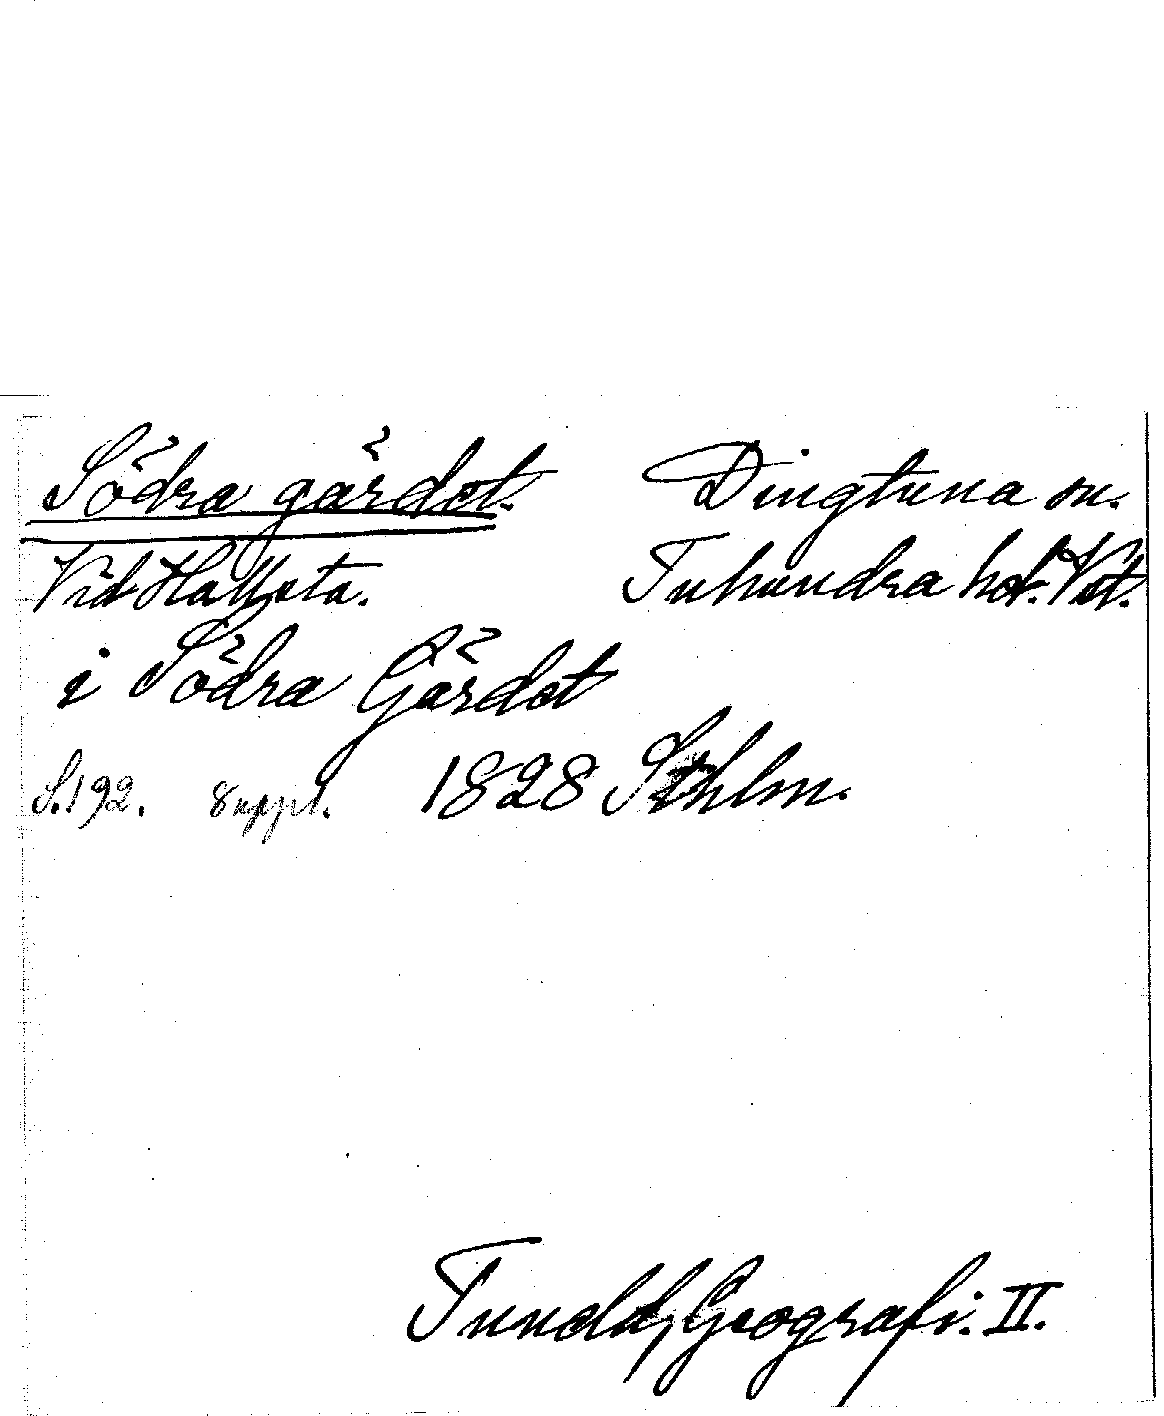 Södra gärdet. Dingtuna sn.
Vid Hallsta. Tuhundra hd. Vst.
i Södra Gärdet
S. 192. 8 uppl. 1828 Sthlm.
Tunéld, Geografi. II.